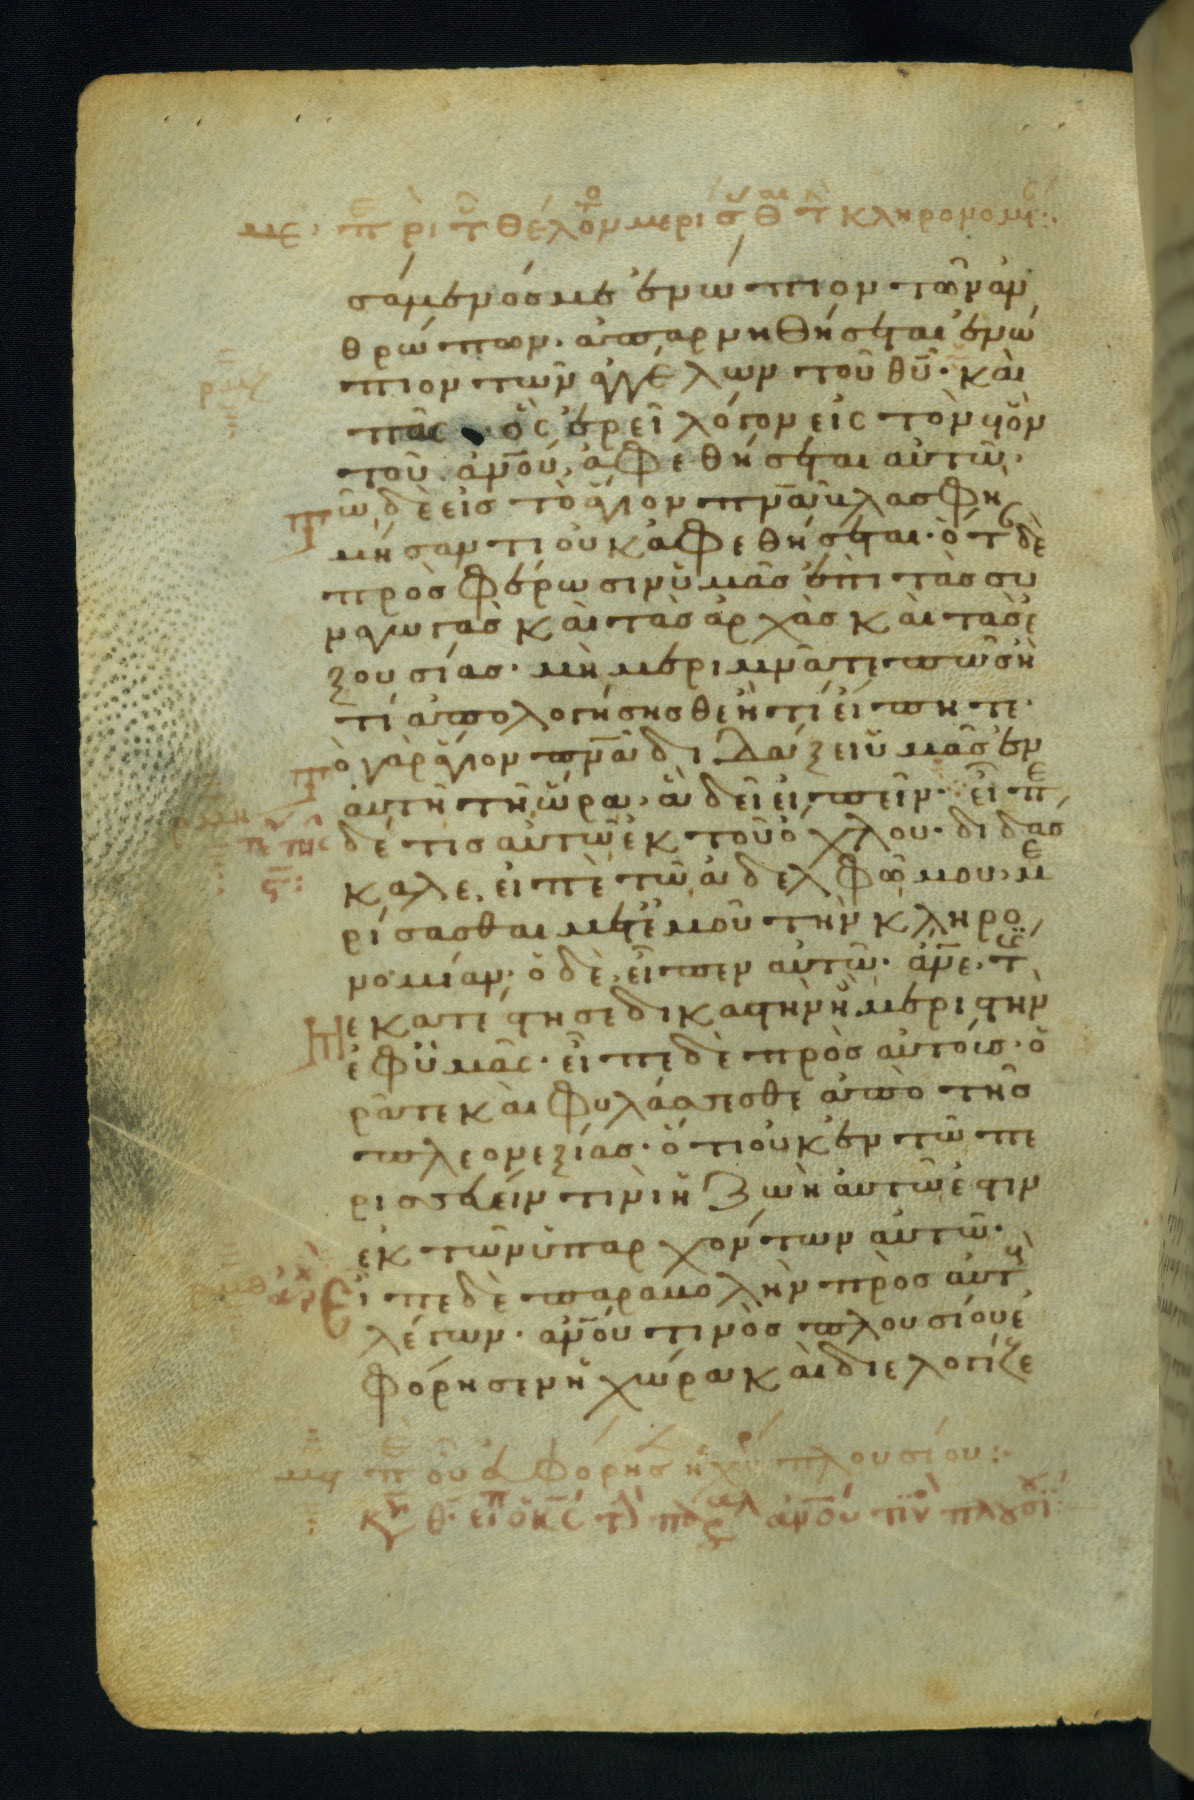 με· περὶ τοῦ θέλοντος μερίσασθαι τὴν κληρονομι:·
σάμενόσ με ἐνώπιον τῶν ἀν
θρώπων· ἀπαρνηθήσεται ἐνώ
πιον τῶν ἀγγέλων τοῦ θυ̅· καὶ
πᾶς ὃς ἐρεῖ λόγον εἰς τὸν υἱὸν
τοῦ ἀνου̅, ἀφεθήσεται αὐτῶ·
τῶ δὲ εἰσ τὸ ἅγιον πνα̅ βλασφη
μήσαντι οὐκ ἀφεθήσεται· ὅτ δὲ
προσφέρωσιν ὑμᾶσ ἐπὶ τὰσ συ
ναγωγὰσ καὶ τὰσ ἀρχὰσ καὶ τὰσ ἐ
ξουσίασ· μὴ μεριμνᾶτε πῶσ ἢ
τί ἀπολογήσησθε ἢ τί εἴπητε·
τὸ γὰρ ἅγιον πνα̅ διδάξει ὑμᾶσ ἐν
αὐτῆ τῆ ὥρα, ἃ δεῖ εἰπεῖν· εἶπε
δέ τισ αὐτῶ ἐκ τοῦ ὄχλου· διδάσ
καλε, εἰπὲ τῶ ἀδελφῶ μου, με
ρίσασθαι μετ ἐμοῦ τὴν κληρο
νομίαν· ὁ δὲ, εἶπεν αὐτῶ· ἀνε̅· τίς
με κατέστησε δικαστὴν ἢ μεριστὴν
ἐφ ὑμᾶς· εἶπε δὲ πρὸσ αὐτούσ· ὁ
ρᾶτε καὶ φυλάσσεσθε ἀπὸ τῆσ
πλεονεξίασ· ὅτι οὐκ ἐν τῶ πε
ρισσεύειν τινὶ ἡ ζωὴ αὐτῶ ἐστιν
ἐκ τῶν ὑπαρχόντων αὐτῶ·
Εἶπε δὲ παραβολὴν πρὸσ αὐτοὺς
λέγων· ἀνου̅ τινὸσ πλουσίου εὐ
φόρησεν ἡ χώρα καὶ διελογίζε
μϛ περὶ οὗ εὐφόρησεν ἡ χώρα πλουσίου:·